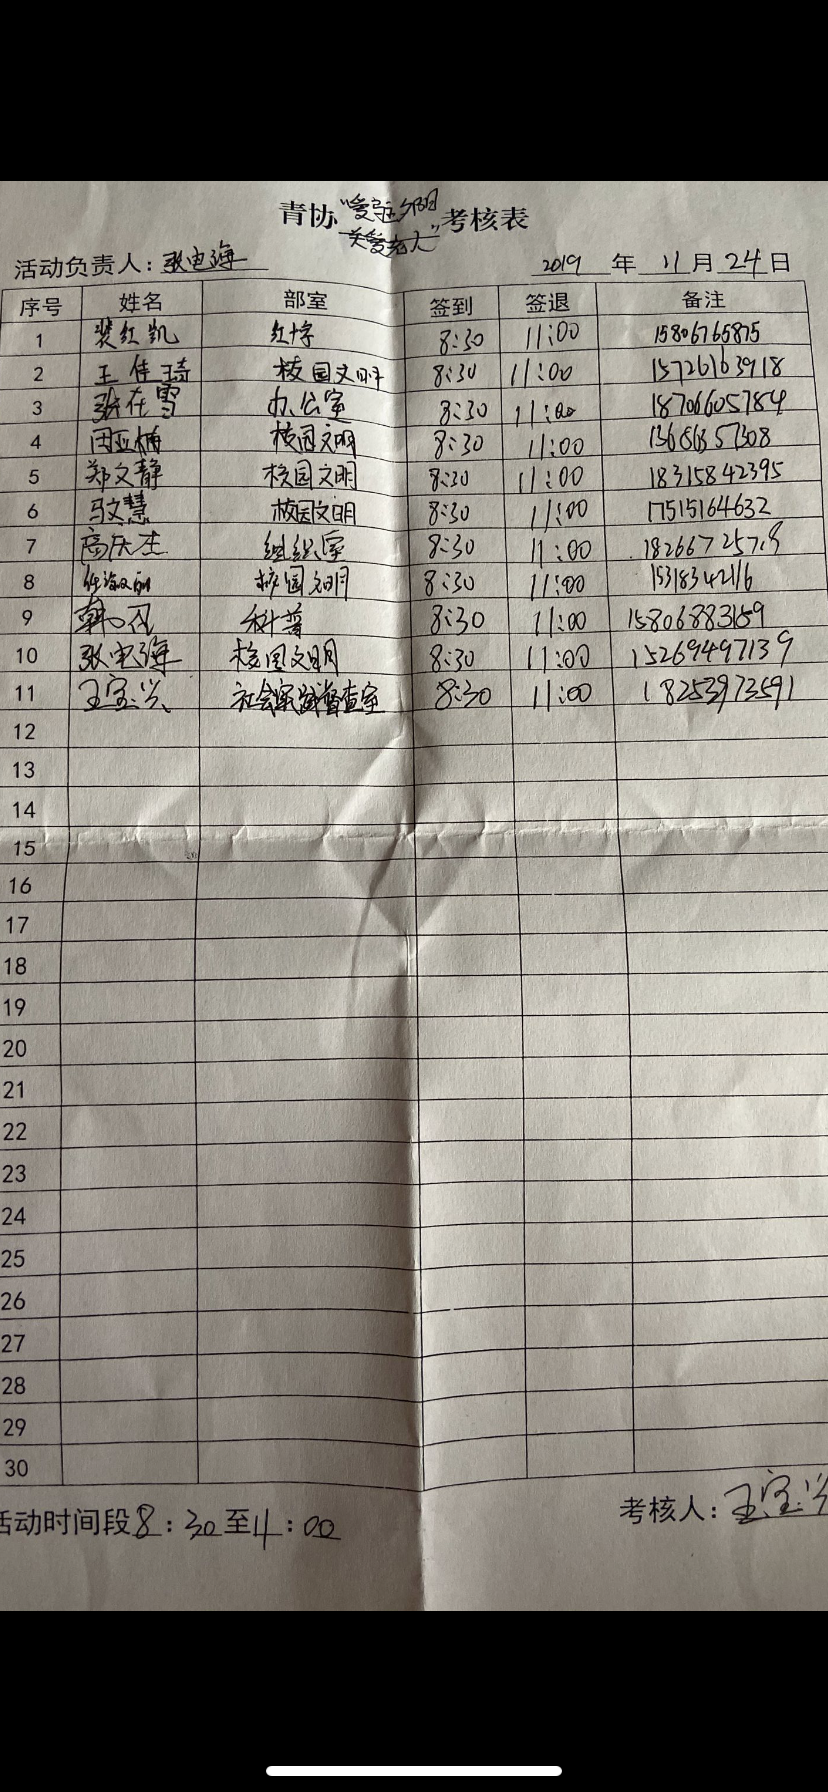 青协"爱在夕阳"考核表
关爱老人
活动负责人：张电海 2019 年 11 月 24 日
序号 姓名 部室 签到 签退 备注
1 裴红凯 红十字 8:30 11:00 15806765875
2 王佳琦 校园文明 8:30 11:00 15726163918
3 张在雪 办公室 8:30 11:00 18706605784
4 闵亚楠 校园文明 8:30 11:00
5 郑文静 校园文明 8:30 11:00 18315842395
6 马文慧 校园文明 8:30 11:00 17515164632
7 高庆杰 组织室 8:30 11:00
8 校园文明 8:30 11:00 15318342116
9 韩 科普 8:30 11:00 15806883159
10 张电海 校园文明 8:30 11:00 15269497139
11 王宝兴 社会实践督查室 8:30 11:00 18253973591
12
13
14
15
16
17
18
19
20
21
22
23
24
25
26
27
28
29
30
活动时间段8：30至11：00 考核人：王宝兴